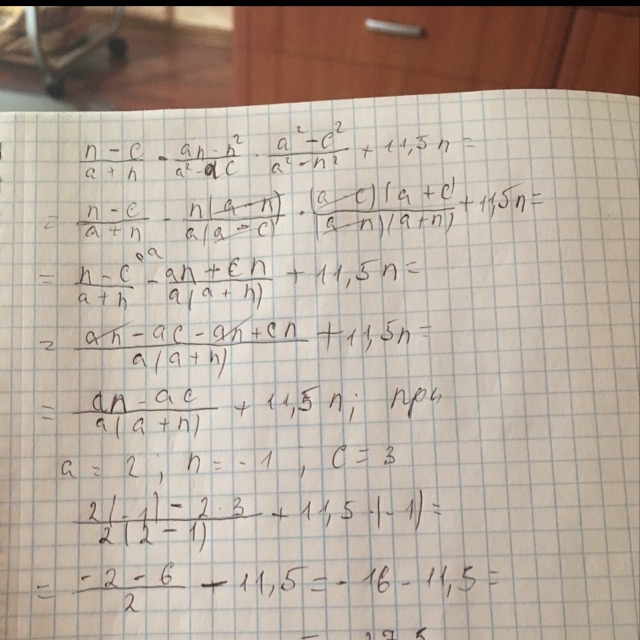 (n-c)/(a+n) - (an-n²)/(a²-ac) · (a²-c²)/(a²-n²) + 11,5n =
= (n-c)/(a+n) - n(a-n)/a(a-c) · (a-c)(a+c)/(a-n)(a+n) + 11,5n =
= (n-c)·a/(a+n) - (an+cn)/a(a+n) + 11,5n =
= (an-ac-an+cn)/a(a+n) + 11,5n =
= (an-ac)/a(a+n) + 11,5n; при
a = 2; n = -1, c = 3
(2(-1)-2·3)/2(2-1) + 11,5·(-1) =
= (-2-6)/2 - 11,5 = -16-11,5 =